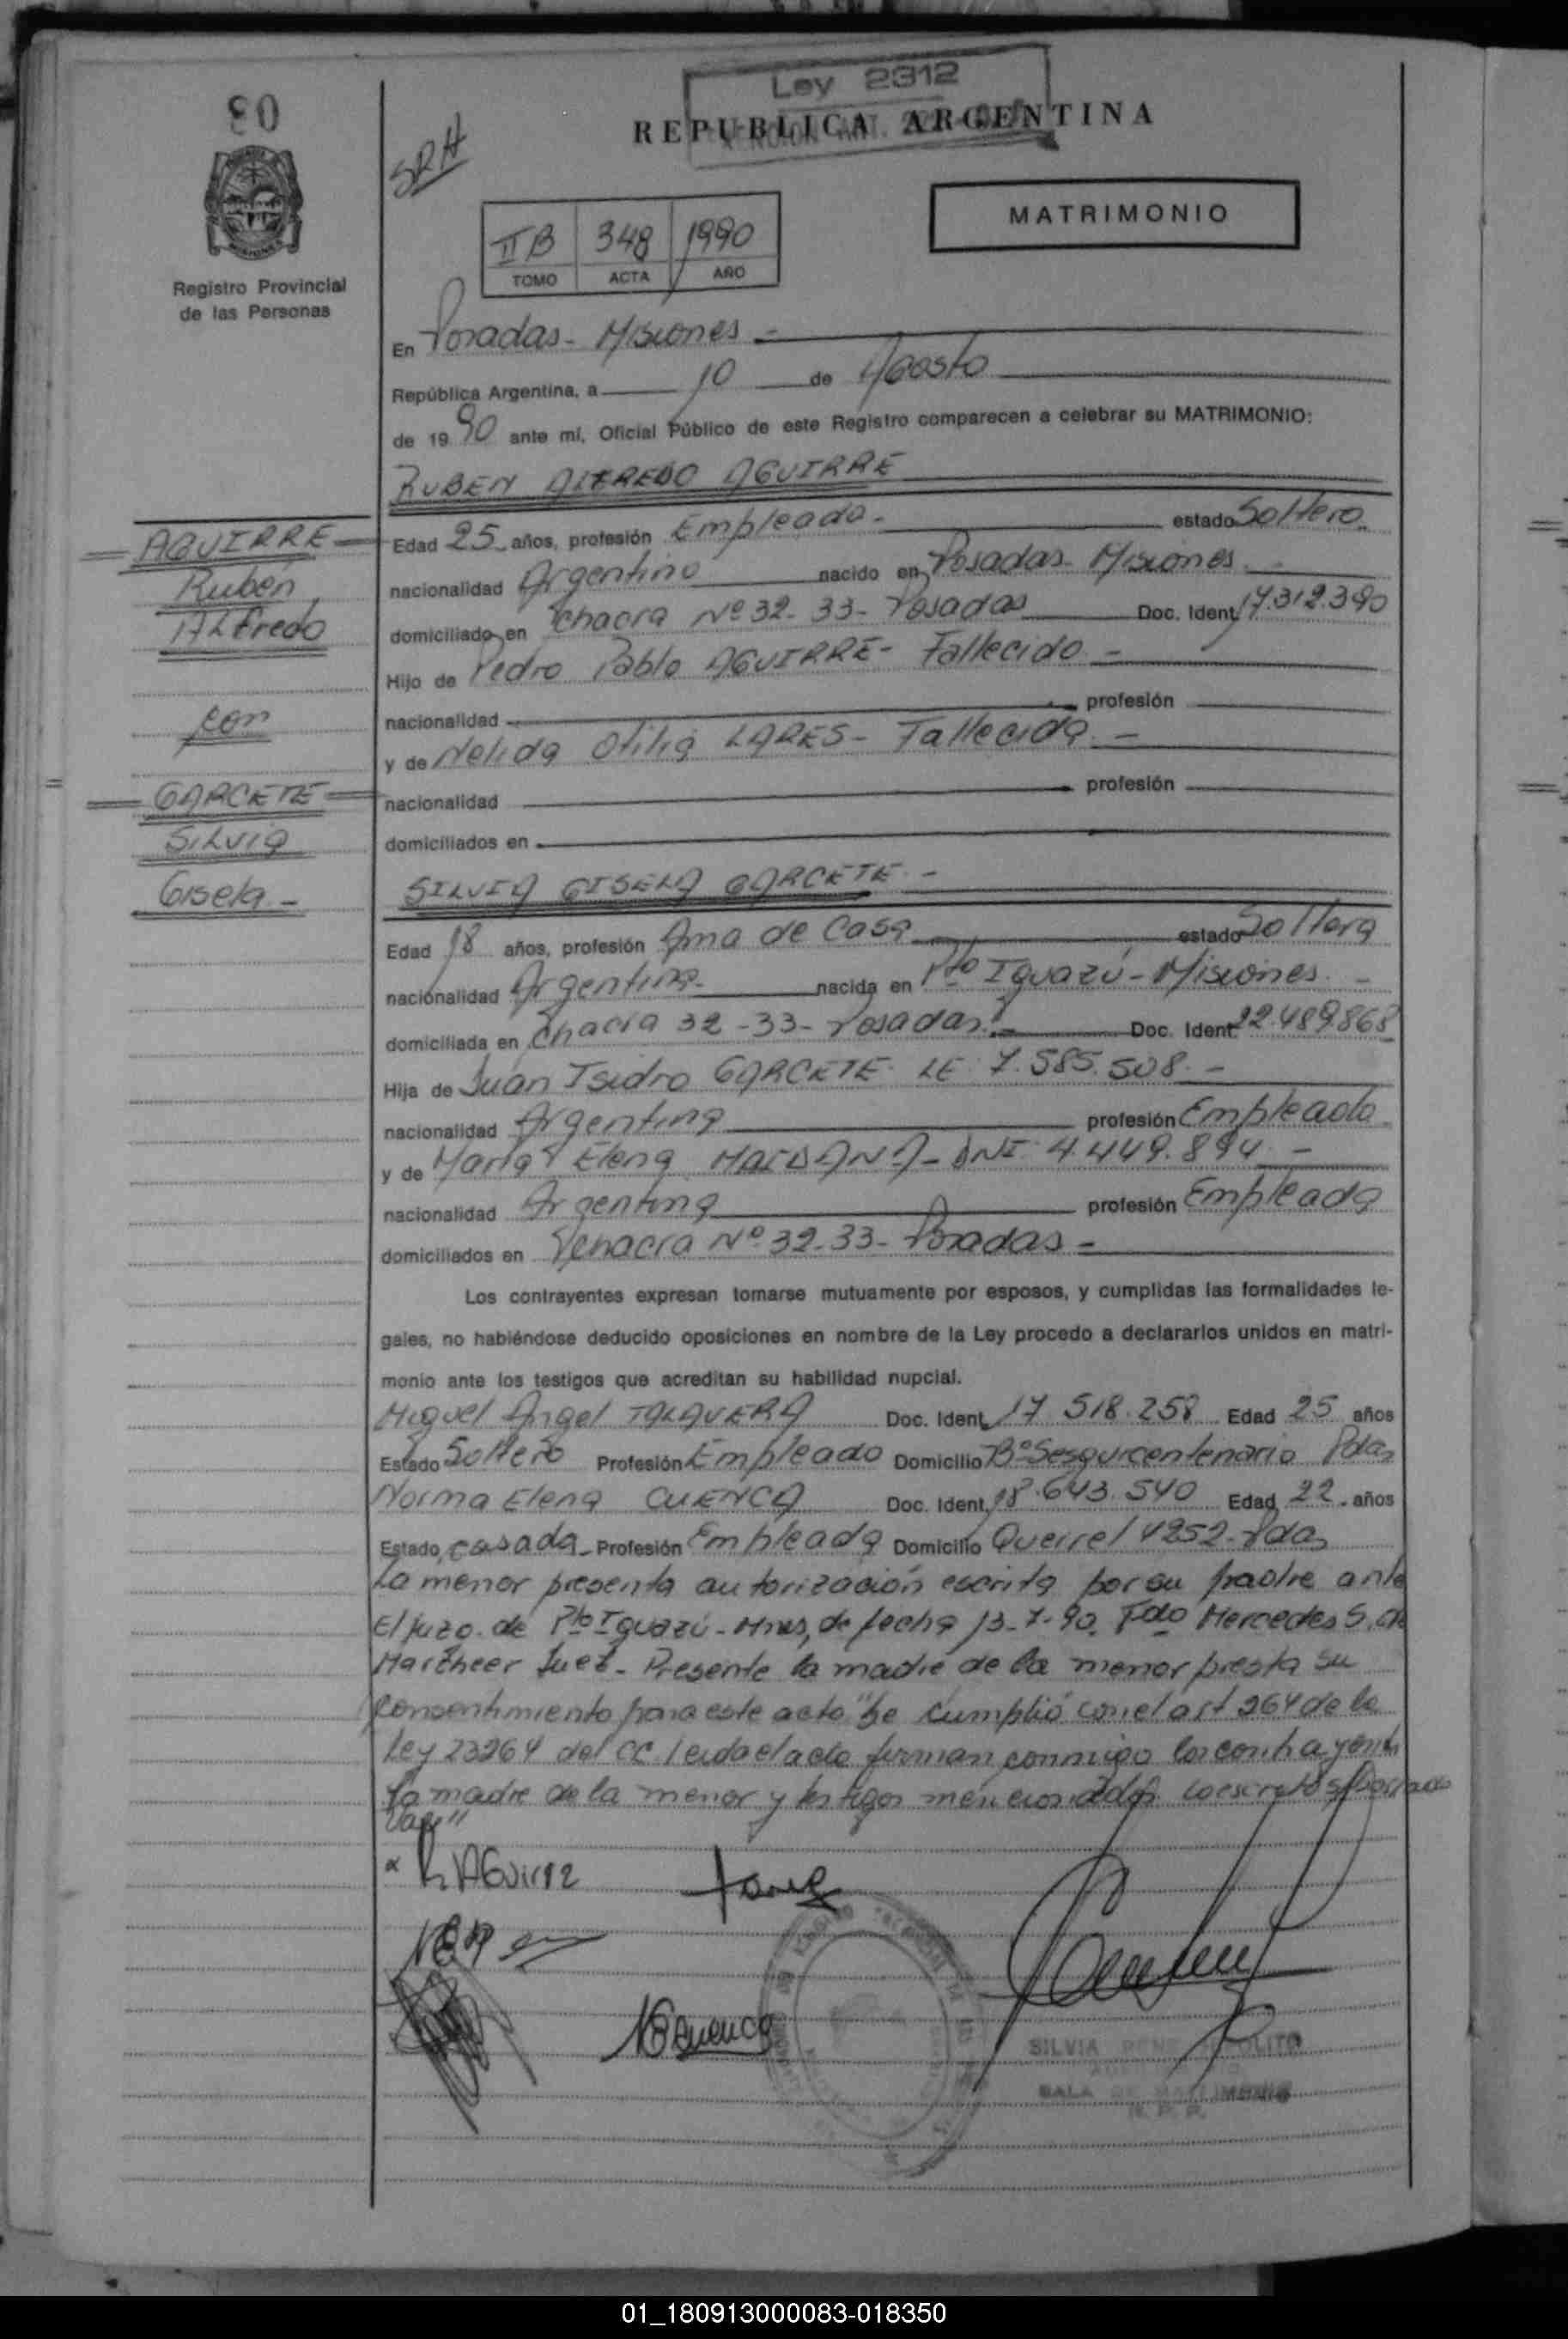 Ley 2312
80
REPUBLICA ARGENTINA
SRH
MATRIMONIO
II B 348 1990
TOMO ACTA AÑO
Registro Provincial
de las Personas
En Posadas - Misiones -
República Argentina, a 10 de Agosto
de 1990 ante mí, Oficial Público de este Registro comparecen a celebrar su MATRIMONIO:
RUBEN ALFREDO AGUIRRE
AGUIRRE
Rubén
Alfredo
con
GARCETE
Silvia
Gisela -
Edad 25 años, profesión Empleado - estado Soltero
nacionalidad Argentino nacido en Posadas - Misiones
domiciliado en Chacra Nº 32-33- Posadas Doc. Ident 17.312.390
Hijo de Pedro Pablo AGUIRRE - Fallecido -
nacionalidad profesión
y de Nelida Otilia LARES - Fallecida -
nacionalidad profesión
domiciliados en
SILVIA GISELA GARCETE -
Edad 18 años, profesión Ama de Casa estado Soltera
nacionalidad Argentina - nacida en Pto Iguazú - Misiones -
domiciliada en Chacra 32-33- Posadas - Doc. Ident 22.489.868
Hija de Juan Isidro GARCETE LE 7.585.508 -
nacionalidad Argentina profesión Empleado
y de Marta Elena MAIDANA - DNI 4.449.894 -
nacionalidad Argentina profesión Empleada
domiciliados en Chacra Nº 32-33- Posadas -
Los contrayentes expresan tomarse mutuamente por esposos, y cumplidas las formalidades le-
gales, no habiéndose deducido oposiciones en nombre de la Ley procedo a declararlos unidos en matri-
monio ante los testigos que acreditan su habilidad nupcial.
Miguel Angel TALAVERA Doc. Ident. 17.518.258 Edad 25 años
Estado Soltero Profesión Empleado Domicilio Bº Sesquicentenario Pdas
Norma Elena CUENCA Doc. Ident. 18.643.540 Edad 22 años
Estado casada - Profesión Empleada Domicilio 4252 - Pdas
La menor presenta autorización escrita por su padre ante
El Juzg. de Pto Iguazú - Mnes, de fecha 13-7-90 Fdo Mercedes S. de
Juez - Presente la madre de la menor presta su
consentimiento para este acto "Se cumplió con el art 264 de la
Ley 23264 del CC. Leida el acta firman conmigo los contrayentes
la madre de la menor y testigos mencionados
Vale"
R Aguirre
NECuenca
SILVIA
SALA DE MATRIMONIO
R. P. P.
01_180913000083-018350